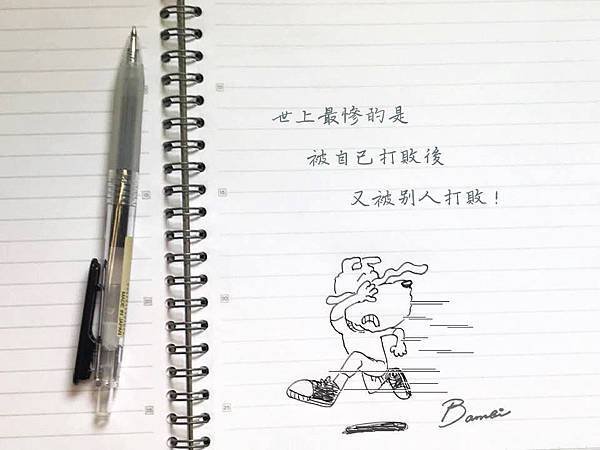 世上最慘的是
被自己打敗後
又被別人打敗！
Bambi
MADE IN JAPAN